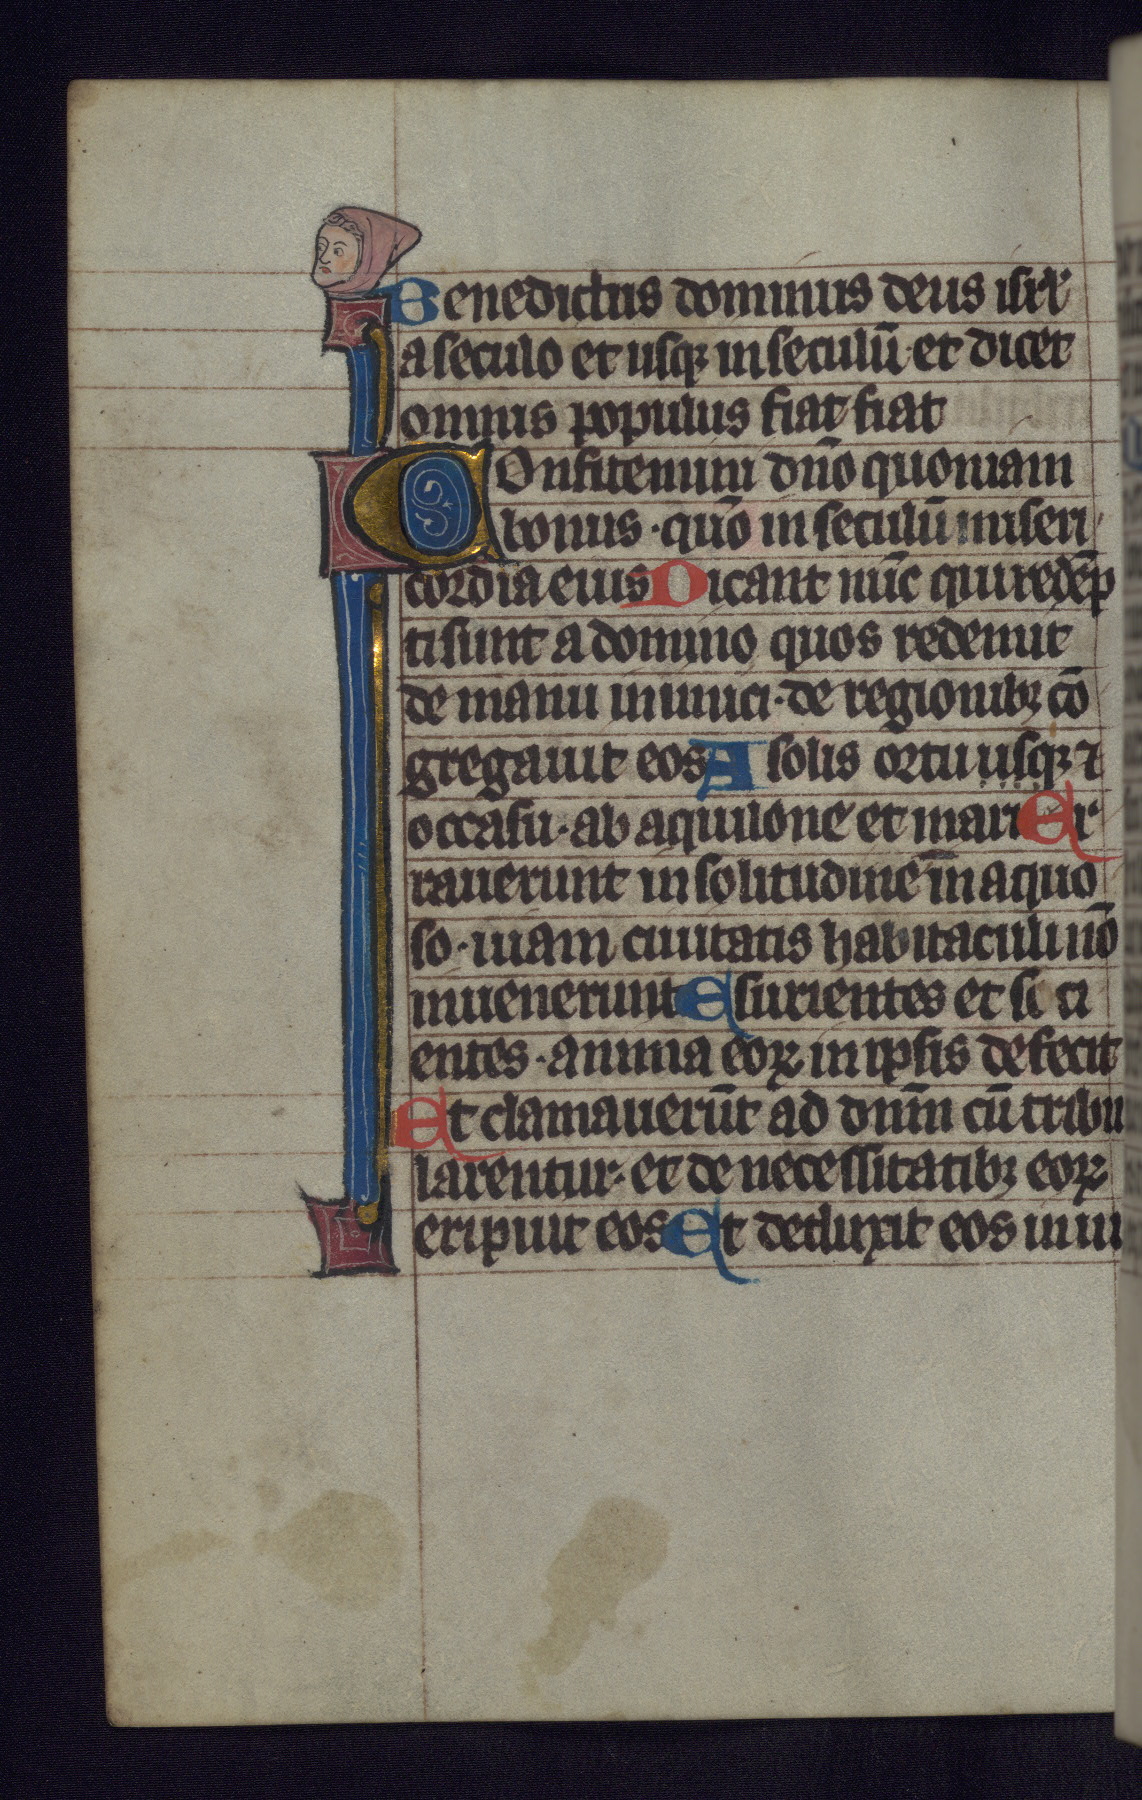 Benedictus dominus deus isrl̃
a seculo et usqꝫ in seculū· et dicet
omnis populus fiat fiat
Confitemini dño quoniam
bonus · quō in seculū miseri
cordia eius Dicant nūc qui redēp
ti sunt a domino quos redemit
de manu inimici · de regionibꝫ cō
gregauit eos A solis ortu usqꝫ ⁊
occasu · ab aquilone et mari Er
rauerunt in solitudine in aquo
so · uiam ciuitatis habitaculi nō
inuenerunt Esurientes et si ti
entes · anima eoꝝ in ipsis defecit
Et clamauerūt ad dnm̄ cū tribu
larentur · et de necessitatibꝫ eoꝝ
eripuit eos Et deduxit eos in ui